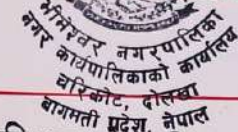 भीमेश्वर नगरपालिका
नगर कार्यपालिकाको कार्यालय
चरिकोट, दोलखा
बागमती प्रदेश, नेपाल